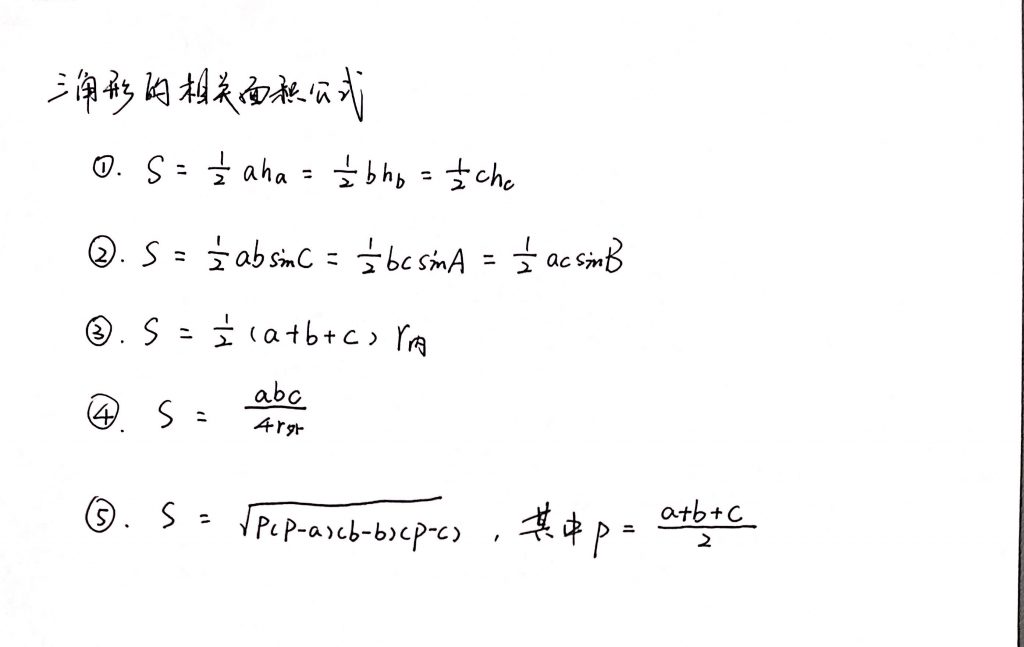 三角形的相关面积公式
①. S = 1/2 aha = 1/2 bhb = 1/2 chc
②. S = 1/2 absinC = 1/2 bcsinA = 1/2 acsinB
③. S = 1/2 (a+b+c) r内
④. S = abc/4r外
⑤. S = √P(P-a)(b-b)(p-c) , 其中 p = a+b+c/2